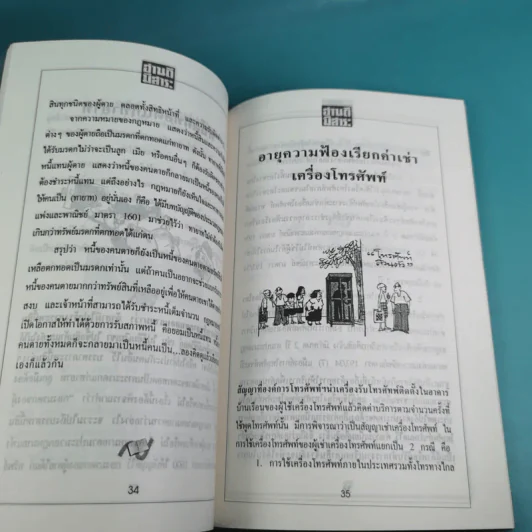 สินทุกชนิดของผู้ตาย ตลอดทั้งสิทธิหน้าที่ และความรับผิด
จากความหมายของกฎหมาย แสดงว่าหนี้สิน
ต่างๆ ของผู้ตายถือเป็นมรดกที่ตกทอดแก่ทายาท ดังนั้น
ได้รับมรดกไม่ว่าจะเป็นลูก เมีย หรือคนอื่นๆ ก็ต้อง
หนี้แทนผู้ตาย แสดงว่าหนี้ของคนตายก็กลายมาเป็นหนี้
ต้องชำระหนี้แทน แต่ถึงอย่างไร กฎหมายก็ยังเห็นใจ
ให้คนเป็น (ทายาท) อยู่นั่นเอง ก็คือ ได้มีบทบัญญัติ
แพ่งและพาณิชย์ มาตรา 1601 มาช่วยไว้ว่า ทายาทไม่
เกินกว่าทรัพย์มรดกที่ตกทอดได้แก่ตน
สรุปว่า หนี้ของคนตายก็ยังเป็นหนี้ของคนตาย
เหลือตกทอดเป็นมรดกเท่านั้น แต่ถ้าคนเป็นอยากจะช่วย
หนี้ของคนตายมากกว่าทรัพย์สินที่เหลืออยู่เพื่อให้คนตายเขาได้
สงบ และเจ้าหน้าที่สามารถได้รับชำระหนี้เต็มจำนวน กฎหมาย
เปิดโอกาสให้ทำได้ด้วยการรับสภาพหนี้ คือยอมเป็นหนี้แทน
คนตายทั้งหมดก็จะกลายมาเป็นหนี้คนเป็น...ลองคิดดูแล้วกัน
เองก็แล้วกัน
34
อายุความฟ้องเรียกค่าเช่า
เครื่องโทรศัพท์
"โทรศัพท์
สัญญาที่องค์การโทรศัพท์ฯนำเครื่องรับโทรศัพท์ติดตั้งในอาคาร
บ้านเรือนของผู้ใช้เครื่องโทรศัพท์แล้วคิดค่าบริการตามจำนวนครั้งที่
ใช้พูดโทรศัพท์นั้น มีการพิจารณาว่าเป็นสัญญาเช่าเครื่องโทรศัพท์ ใน
การใช้เครื่องโทรศัพท์ของผู้เช่าเครื่องโทรศัพท์แยกเป็น 2 กรณี คือ
1. การใช้เครื่องโทรศัพท์ภายในประเทศรวมทั้งโทรทางไกล
35